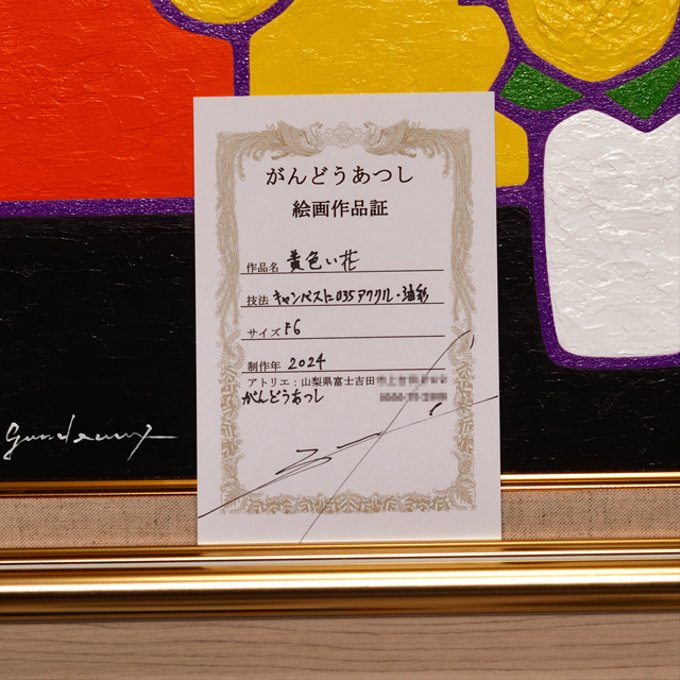 がんどうあつし
絵画作品証
作品名 黄色い花
技法 キャンバスに035アクリル・油彩
サイズ F6
制作年 2024
アトリエ：山梨県富士吉田
がんどうあつし